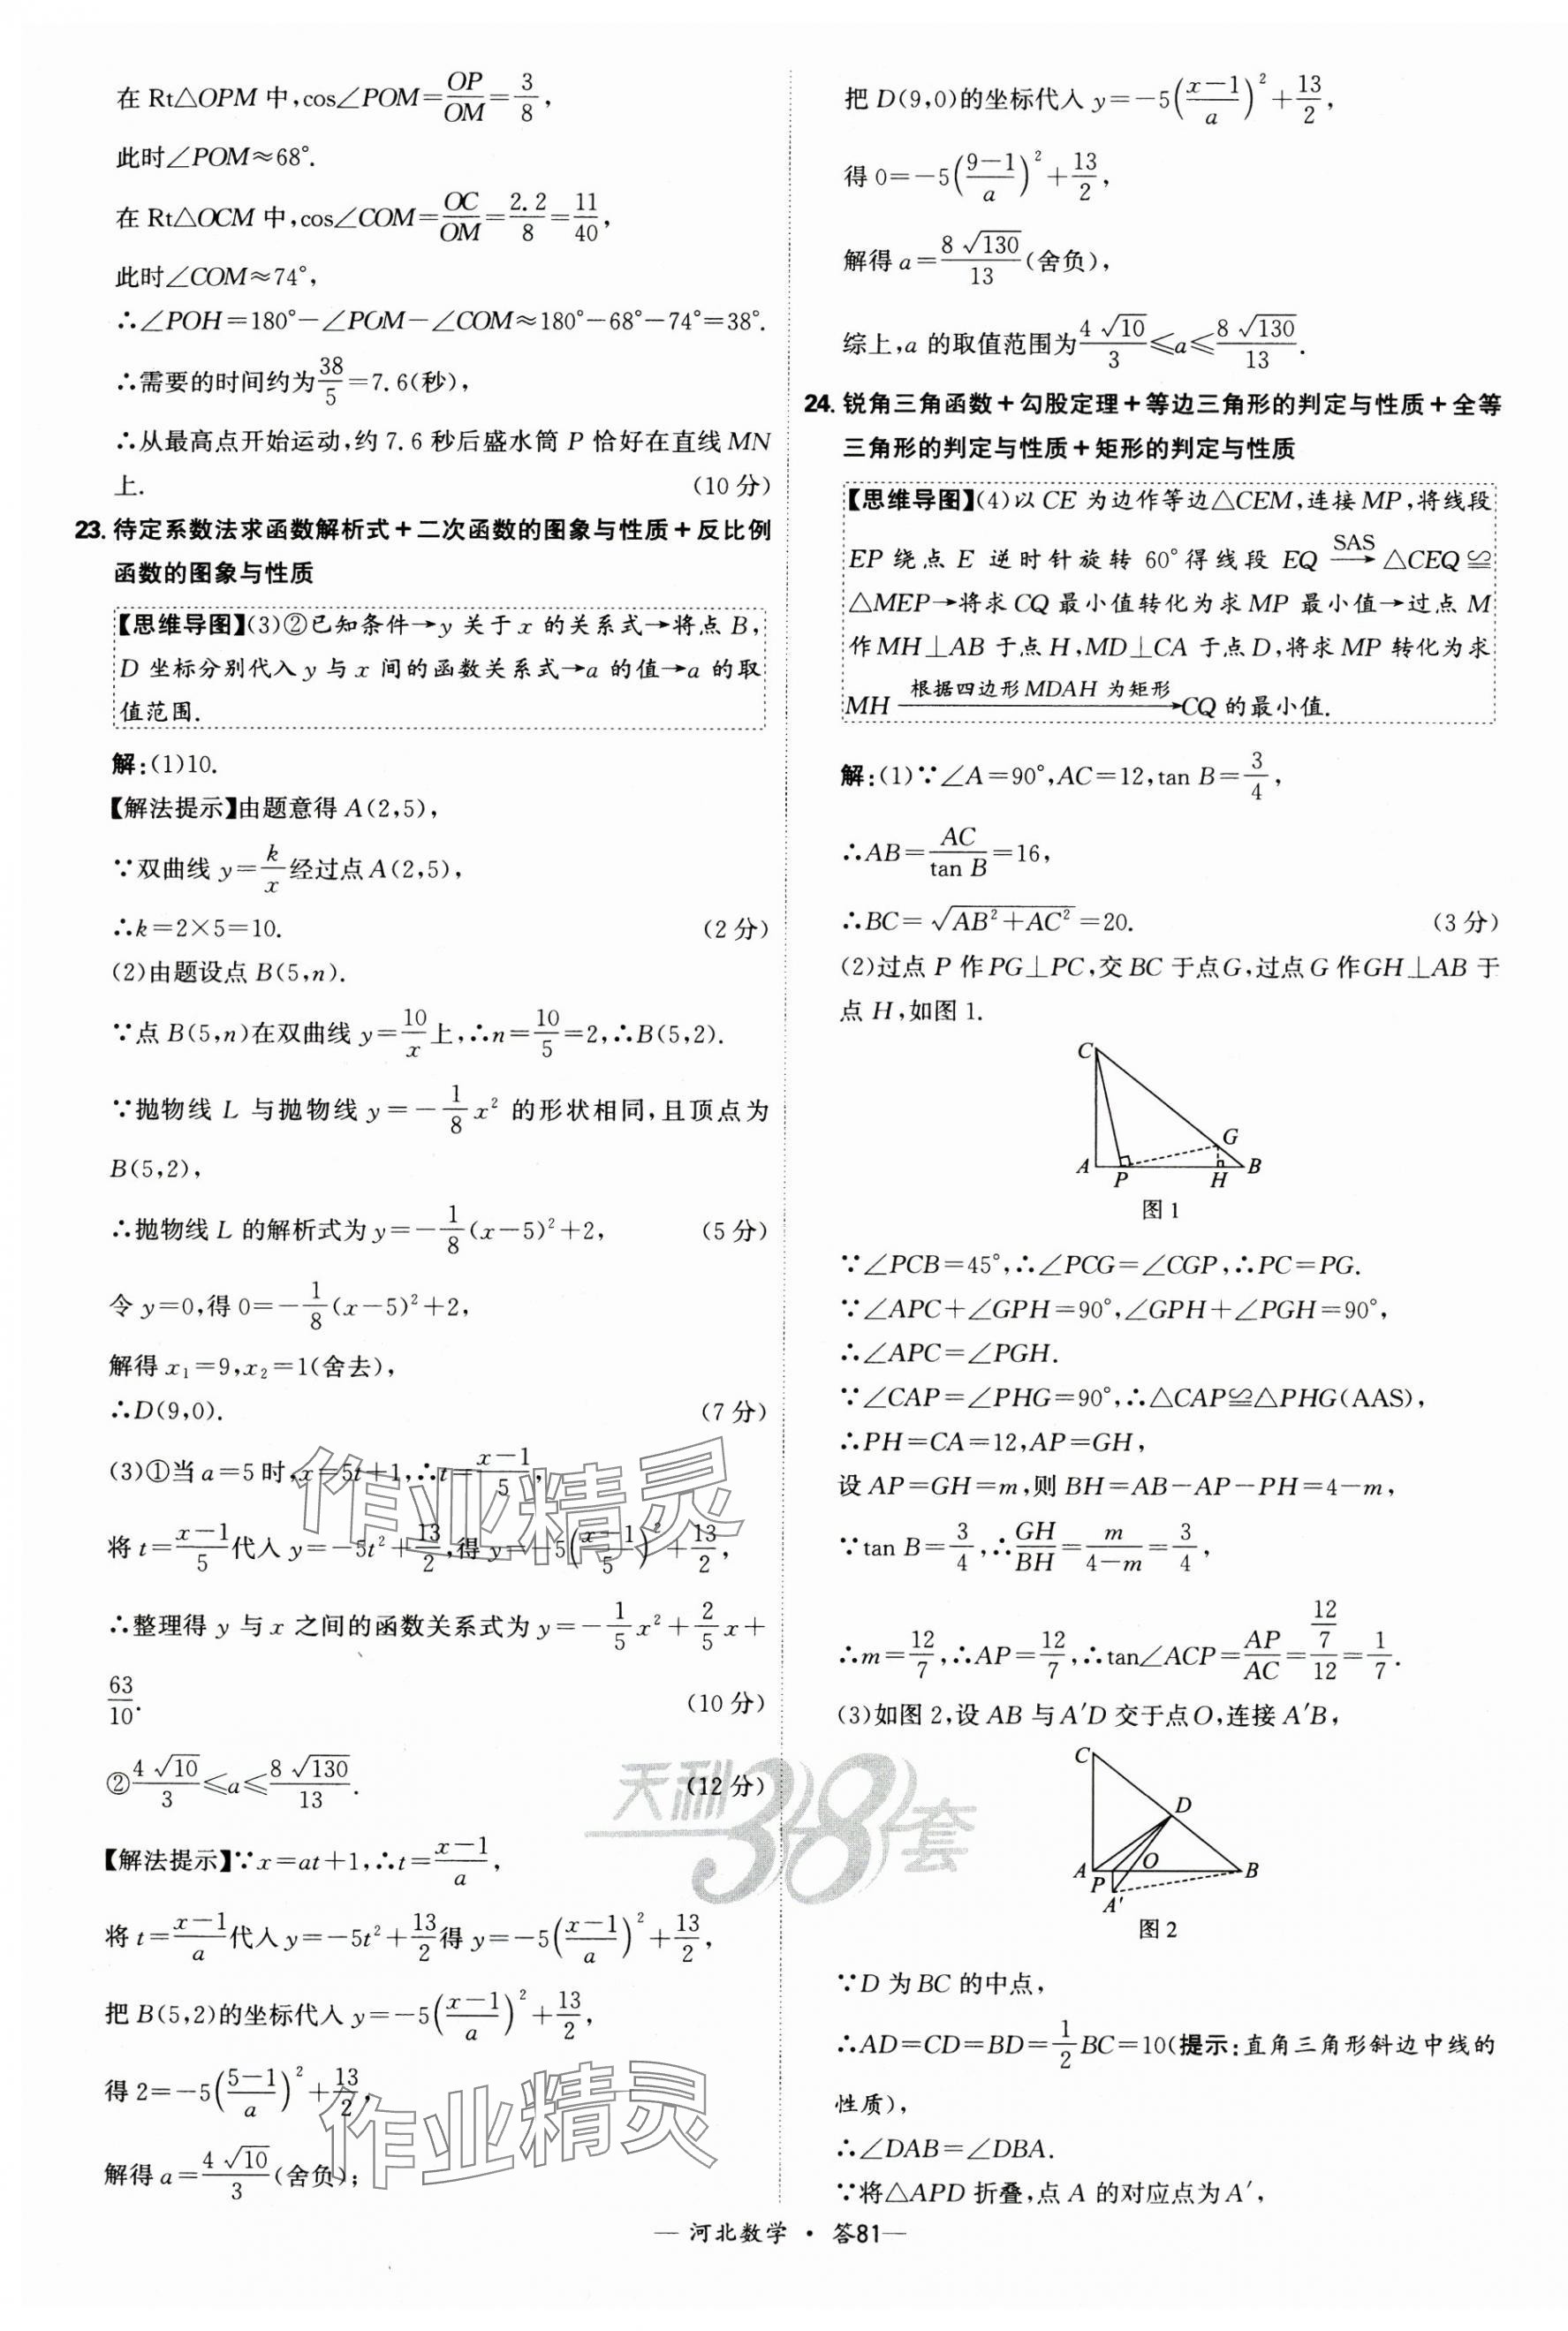 在 Rt△OPM 中,cos∠POM=OP/OM=3/8,
此时∠POM≈68°.
在 Rt△OCM 中,cos∠COM=OC/OM=2.2/8=11/40,
此时∠COM≈74°,
∴∠POH=180°-∠POM-∠COM≈180°-68°-74°=38°.
∴需要的时间约为38/5=7.6(秒),
∴从最高点开始运动,约 7.6 秒后盛水筒 P 恰好在直线 MN
上. (10 分)
23. 待定系数法求函数解析式+二次函数的图象与性质+反比例
函数的图象与性质
【思维导图】(3)②已知条件→y 关于 x 的关系式→将点 B,
D 坐标分别代入 y 与 x 间的函数关系式→a 的值→a 的取
值范围.
解:(1)10.
【解法提示】由题意得 A(2,5),
∵双曲线 y=k/x 经过点 A(2,5),
∴k=2×5=10. (2 分)
(2)由题设点 B(5,n).
∵点 B(5,n)在双曲线 y=10/x 上,∴n=10/5=2,∴B(5,2).
∵抛物线 L 与抛物线 y=-1/8x² 的形状相同,且顶点为
B(5,2),
∴抛物线 L 的解析式为 y=-1/8(x-5)²+2, (5 分)
令 y=0,得 0=-1/8(x-5)²+2,
解得 x₁=9,x₂=1(舍去),
∴D(9,0). (7 分)
(3)①当 a=5 时,x=5t+1,∴t=(x-1)/5,
将 t=(x-1)/5 代入 y=-5t²+13/2,得 y=-5((x-1)/5)²+13/2,
∴整理得 y 与 x 之间的函数关系式为 y=-1/5x²+2/5x+
63/10. (10 分)
②4√10/3≤a≤8√130/13. (12 分)
【解法提示】∵x=at+1,∴t=(x-1)/a,
将 t=(x-1)/a 代入 y=-5t²+13/2 得 y=-5((x-1)/a)²+13/2,
把 B(5,2)的坐标代入 y=-5((x-1)/a)²+13/2,
得 2=-5((5-1)/a)²+13/2,
解得 a=4√10/3(舍负);
把 D(9,0)的坐标代入 y=-5((x-1)/a)²+13/2,
得 0=-5((9-1)/a)²+13/2,
解得 a=8√130/13(舍负),
综上,a 的取值范围为 4√10/3≤a≤8√130/13.
24. 锐角三角函数+勾股定理+等边三角形的判定与性质+全等
三角形的判定与性质+矩形的判定与性质
【思维导图】(4)以 CE 为边作等边△CEM,连接 MP,将线段
EP 绕点 E 逆时针旋转 60°得线段 EQ —SAS→ △CEQ≌
△MEP→将求 CQ 最小值转化为求 MP 最小值→过点 M
作 MH⊥AB 于点 H,MD⊥CA 于点 D,将求 MP 转化为求
MH —根据四边形 MDAH 为矩形→CQ 的最小值.
解:(1)∵∠A=90°,AC=12,tan B=3/4,
∴AB=AC/tan B=16,
∴BC=√(AB²+AC²)=20. (3 分)
(2)过点 P 作 PG⊥PC,交 BC 于点G,过点 G 作GH⊥AB 于
点 H,如图 1.
C
G
A
P
H
B
图 1
∵∠PCB=45°,∴∠PCG=∠CGP,∴PC=PG.
∵∠APC+∠GPH=90°,∠GPH+∠PGH=90°,
∴∠APC=∠PGH.
∵∠CAP=∠PHG=90°,∴△CAP≌△PHG(AAS),
∴PH=CA=12,AP=GH,
设 AP=GH=m,则 BH=AB-AP-PH=4-m,
∵tan B=3/4,∴GH/BH=m/(4-m)=3/4,
∴m=12/7,∴AP=12/7,∴tan∠ACP=AP/AC=(12/7)/12=1/7.
(3)如图 2,设 AB 与A′D 交于点O,连接 A′B,
C
D
A
O
B
P
A′
图 2
∵D 为 BC 的中点,
∴AD=CD=BD=1/2BC=10(提示:直角三角形斜边中线的
性质),
∴∠DAB=∠DBA.
∵将△APD 折叠,点 A 的对应点为 A′,
作业精灵
天利38套
作业精灵
— 河北数学 · 答81—